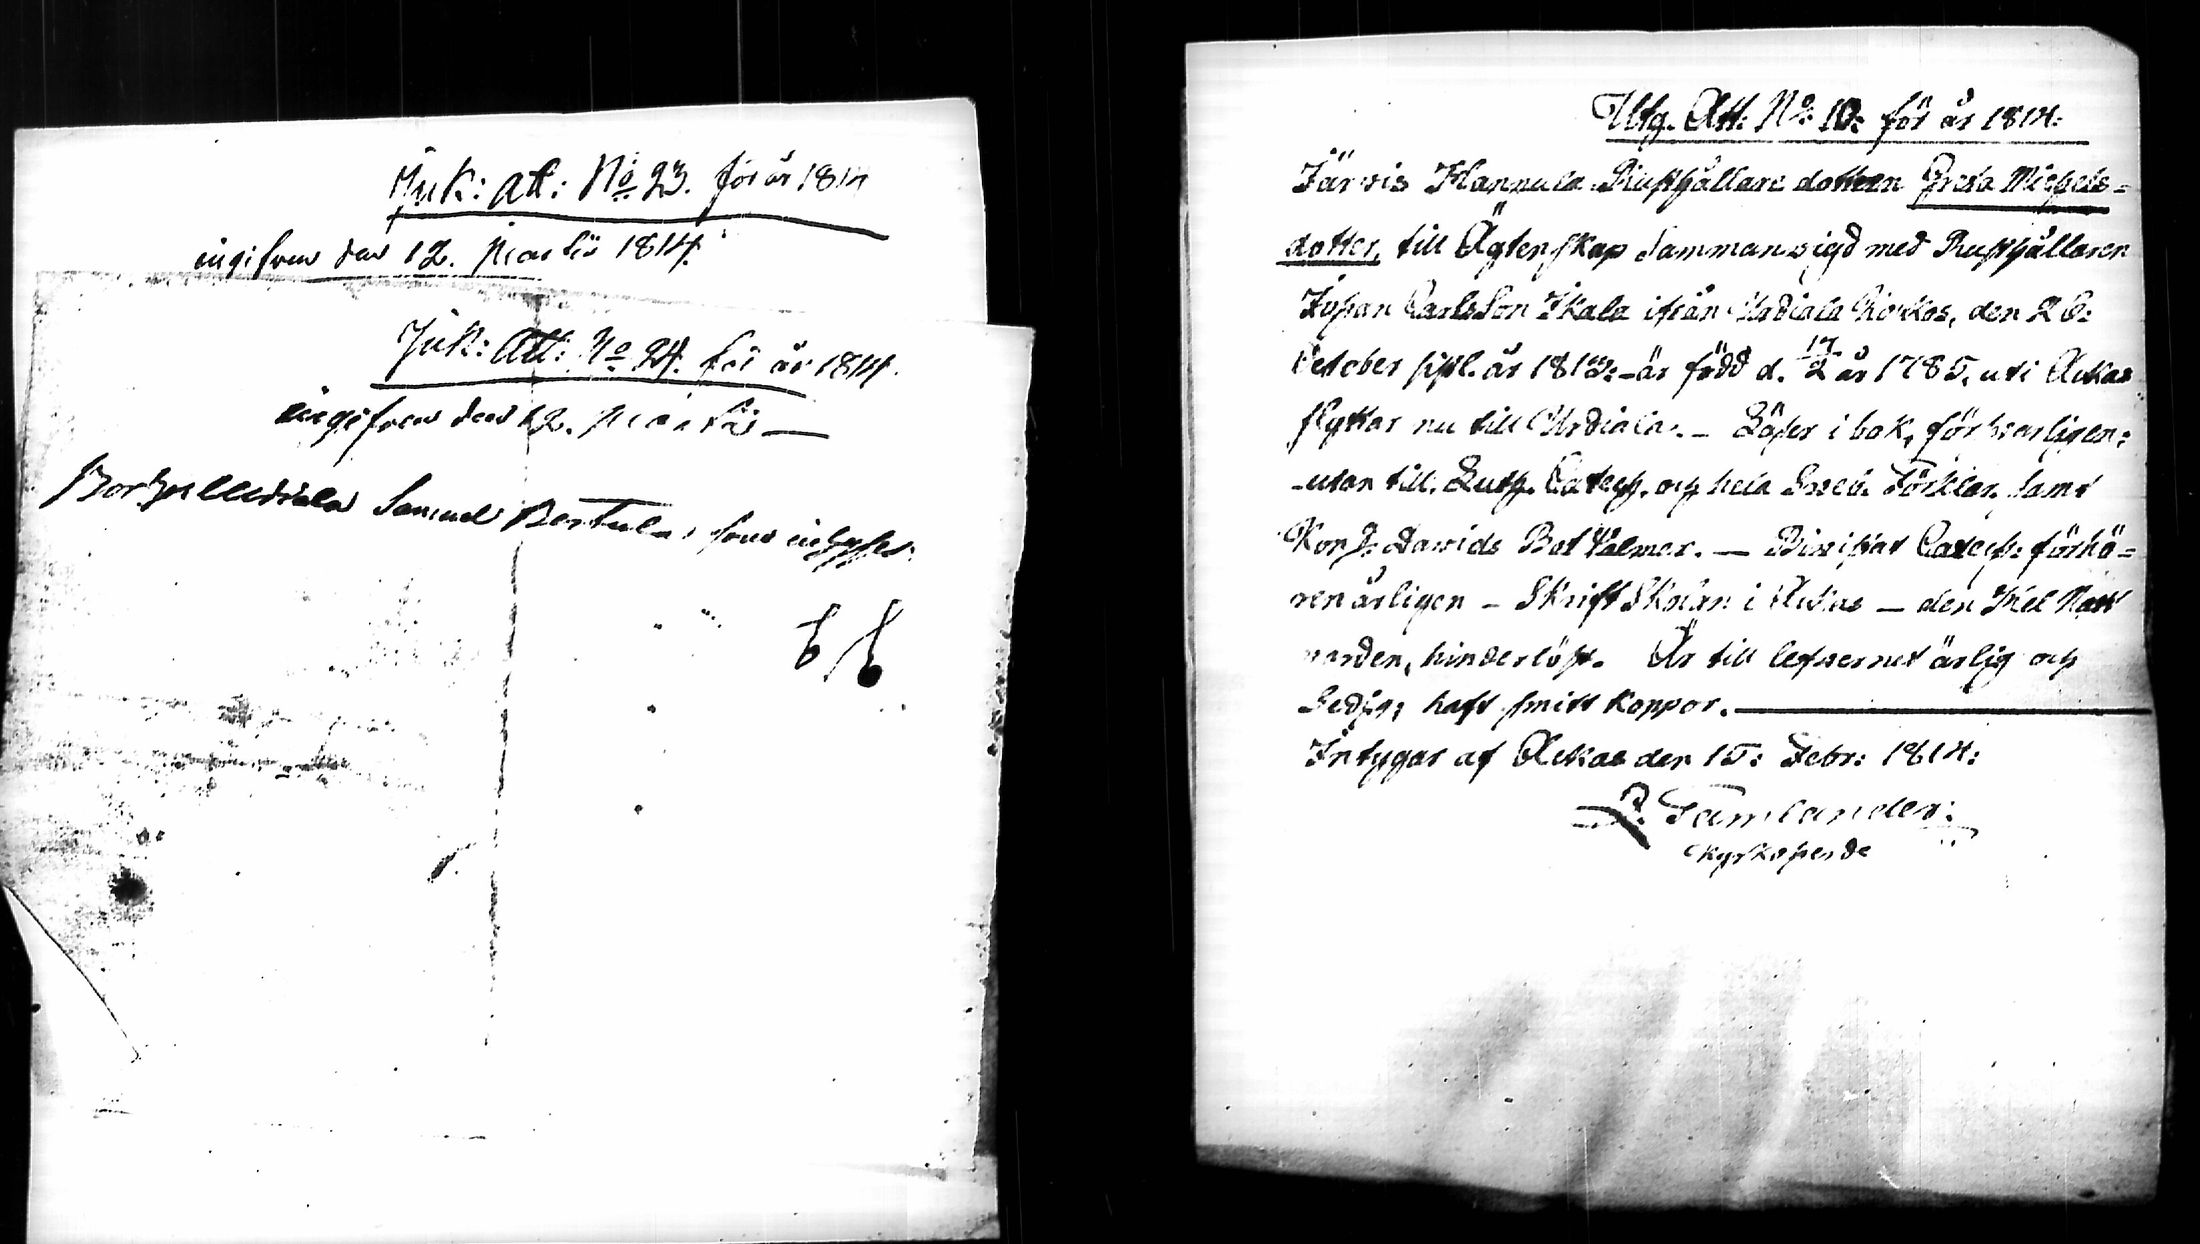 Ink: att: No 23. för år 1814
ingifven den 12. Martii 1814.
Ink: Att: No 24. för år 1814.
ingifven den 12. Martii —
Samuel Bertula
Utg. Att: No: 10: för år 1814:
Järvis Hannula Rusthållare dottren Greta Michels=
dotter, till Ägtenskap Sammanvigd med Rusthållaren
Johan Carlsson Ikala ifrån Urdiala Kirkos, den 26:
October sistl. år 1813: är född d. 17/2 år 1785, uti Ackas
flyttar nu till Urdiala. – Läser i bok, försvarligen:
utan till. Luth. Catech. och hela Sveb. Förklar. samt
Kon J. Davids Bot Psalmer. — Bivistat Catech: förhö=
ren årligen – SkriftSkolan i Ackas — den Hel Natt
varden, hinderlöst. Är till lefvernet ärlig och
Sedig, haft smitt koppor.
Intygar af Ackas den 15: Febr: 1814:
Tamlander:
Kyrkoherde